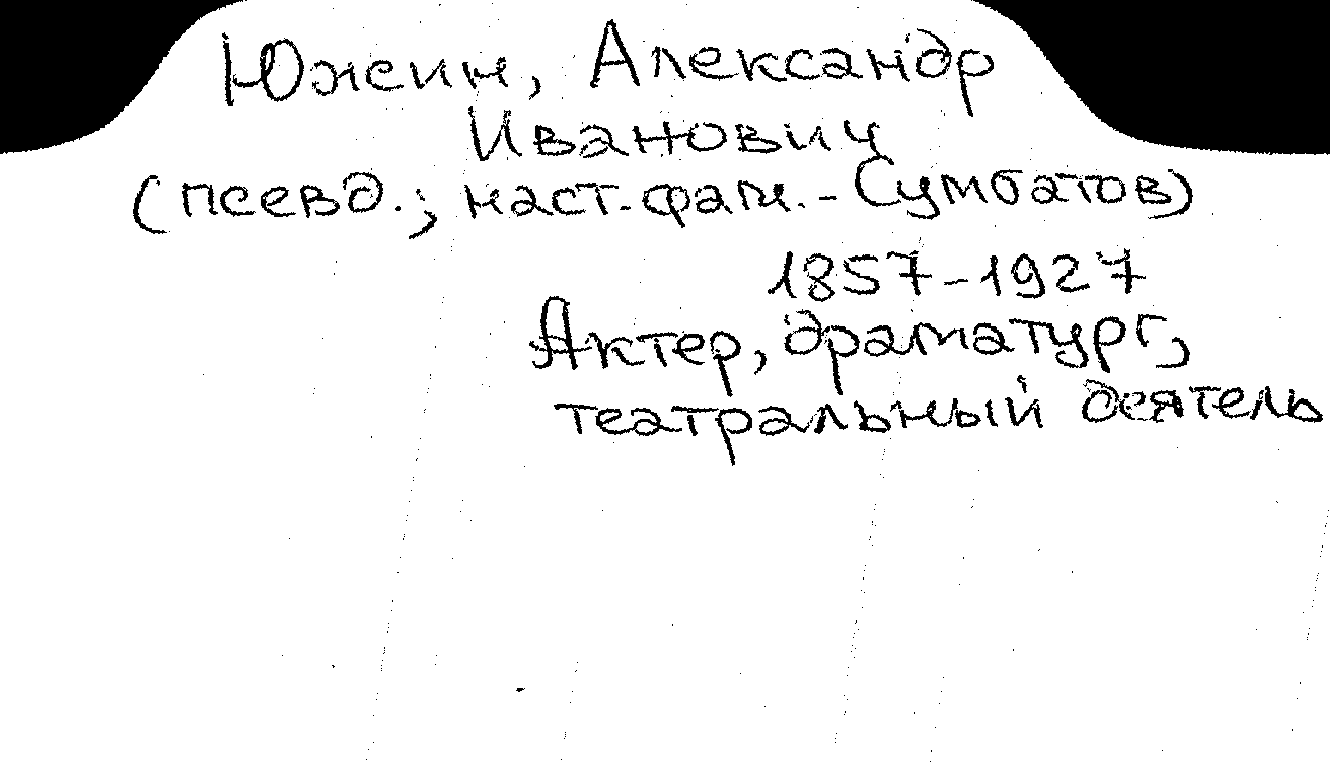 Южин, Александр
Иванович
(псевд.; наст. фам. - Сумбатов)
1857-1927
Актер, драматург,
театральный деятель